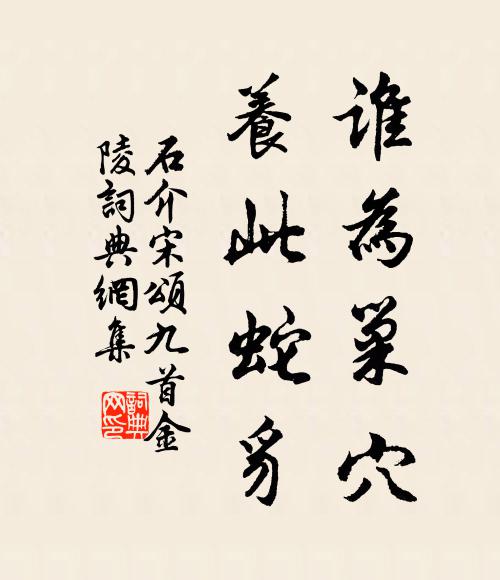 誰為巢穴
養此蛇豸
石介宋頌九首金
陵詞典網集
詞典
网印